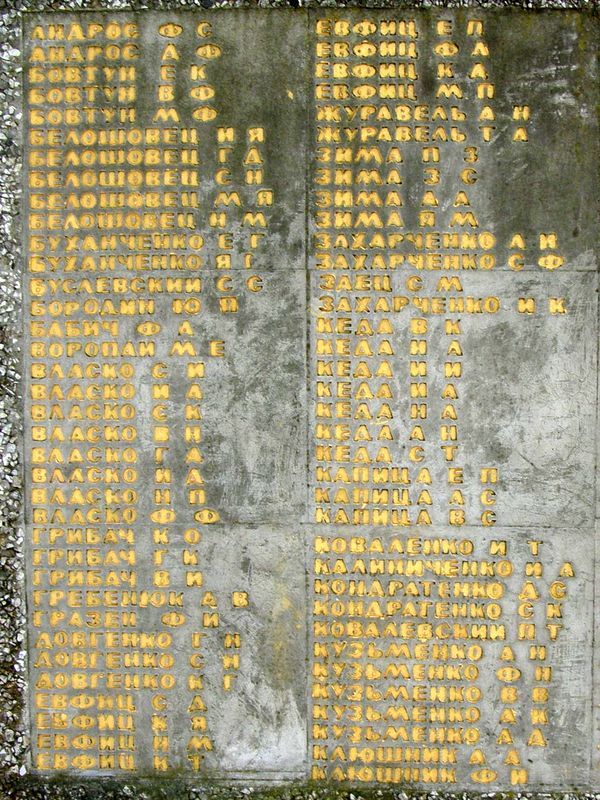 АНДРОС Ф С
АНДРОС А Ф
БОВТУН Е К
БОВТУН В Ф
БОВТУН М Ф
БЕЛОШОВЕЦ И Я
БЕЛОШОВЕЦ Г Д
БЕЛОШОВЕЦ С Н
БЕЛОШОВЕЦ М Я
БЕЛОШОВЕЦ Н М
БУХАНЧЕНКО Е Г
БУХАНЧЕНКО Я Г
БУСЛЕВСКИЙ С С
БОРОДИН Ю П
БАБИЧ Ф А
ВОРОПАЙ М Е
ВЛАСКО С И
ВЛАСКО И А
ВЛАСКО С К
ВЛАСКО В Н
ВЛАСКО Г А
ВЛАСКО И А
ВЛАСКО Н П
ВЛАСКО Ф Ф
ГРИБАЧ К О
ГРИБАЧ Г К
ГРИБАЧ В И
ГРЕБЕНЮК Д В
ГРАЗЕН Ф И
ДОВГЕНКО Г Н
ДОВГЕНКО С И
ДОВГЕНКО К Г
ЕВФИЦ С Д
ЕВФИЦ К Я
ЕВФИЦ Н М
ЕВФИЦ К Т
ЕВФИЦ Е П
ЕВФИЦ Ф А
ЕВФИЦ К Д
ЕВФИЦ М П
ЖУРАВЕЛЬ А Н
ЖУРАВЕЛЬ Т А
ЗИМА П З
ЗИМА З С
ЗИМА А А
ЗИМА Я М
ЗАХАРЧЕНКО А И
ЗАХАРЧЕНКО С Ф
ЗАЕЦ С М
ЗАХАРЧЕНКО И К
КЕДА В К
КЕДА Н А
КЕДА И И
КЕДА И А
КЕДА Н А
КЕДА А Н
КЕДА С Т
КАПИЦА Е П
КАПИЦА А С
КАПИЦА В С
КОВАЛЕНКО И Т
КАЛИНИЧЕНКО И А
КОНДРАТЕНКО Д С
КОНДРАТЕНКО С К
КОВАЛЕВСКИЙ П Т
КУЗЬМЕНКО А Н
КУЗЬМЕНКО Ф Н
КУЗЬМЕНКО В В
КУЗЬМЕНКО А К
КУЗЬМЕНКО А Д
КЛЮШНИК А А
КЛЮШНИК Ф И